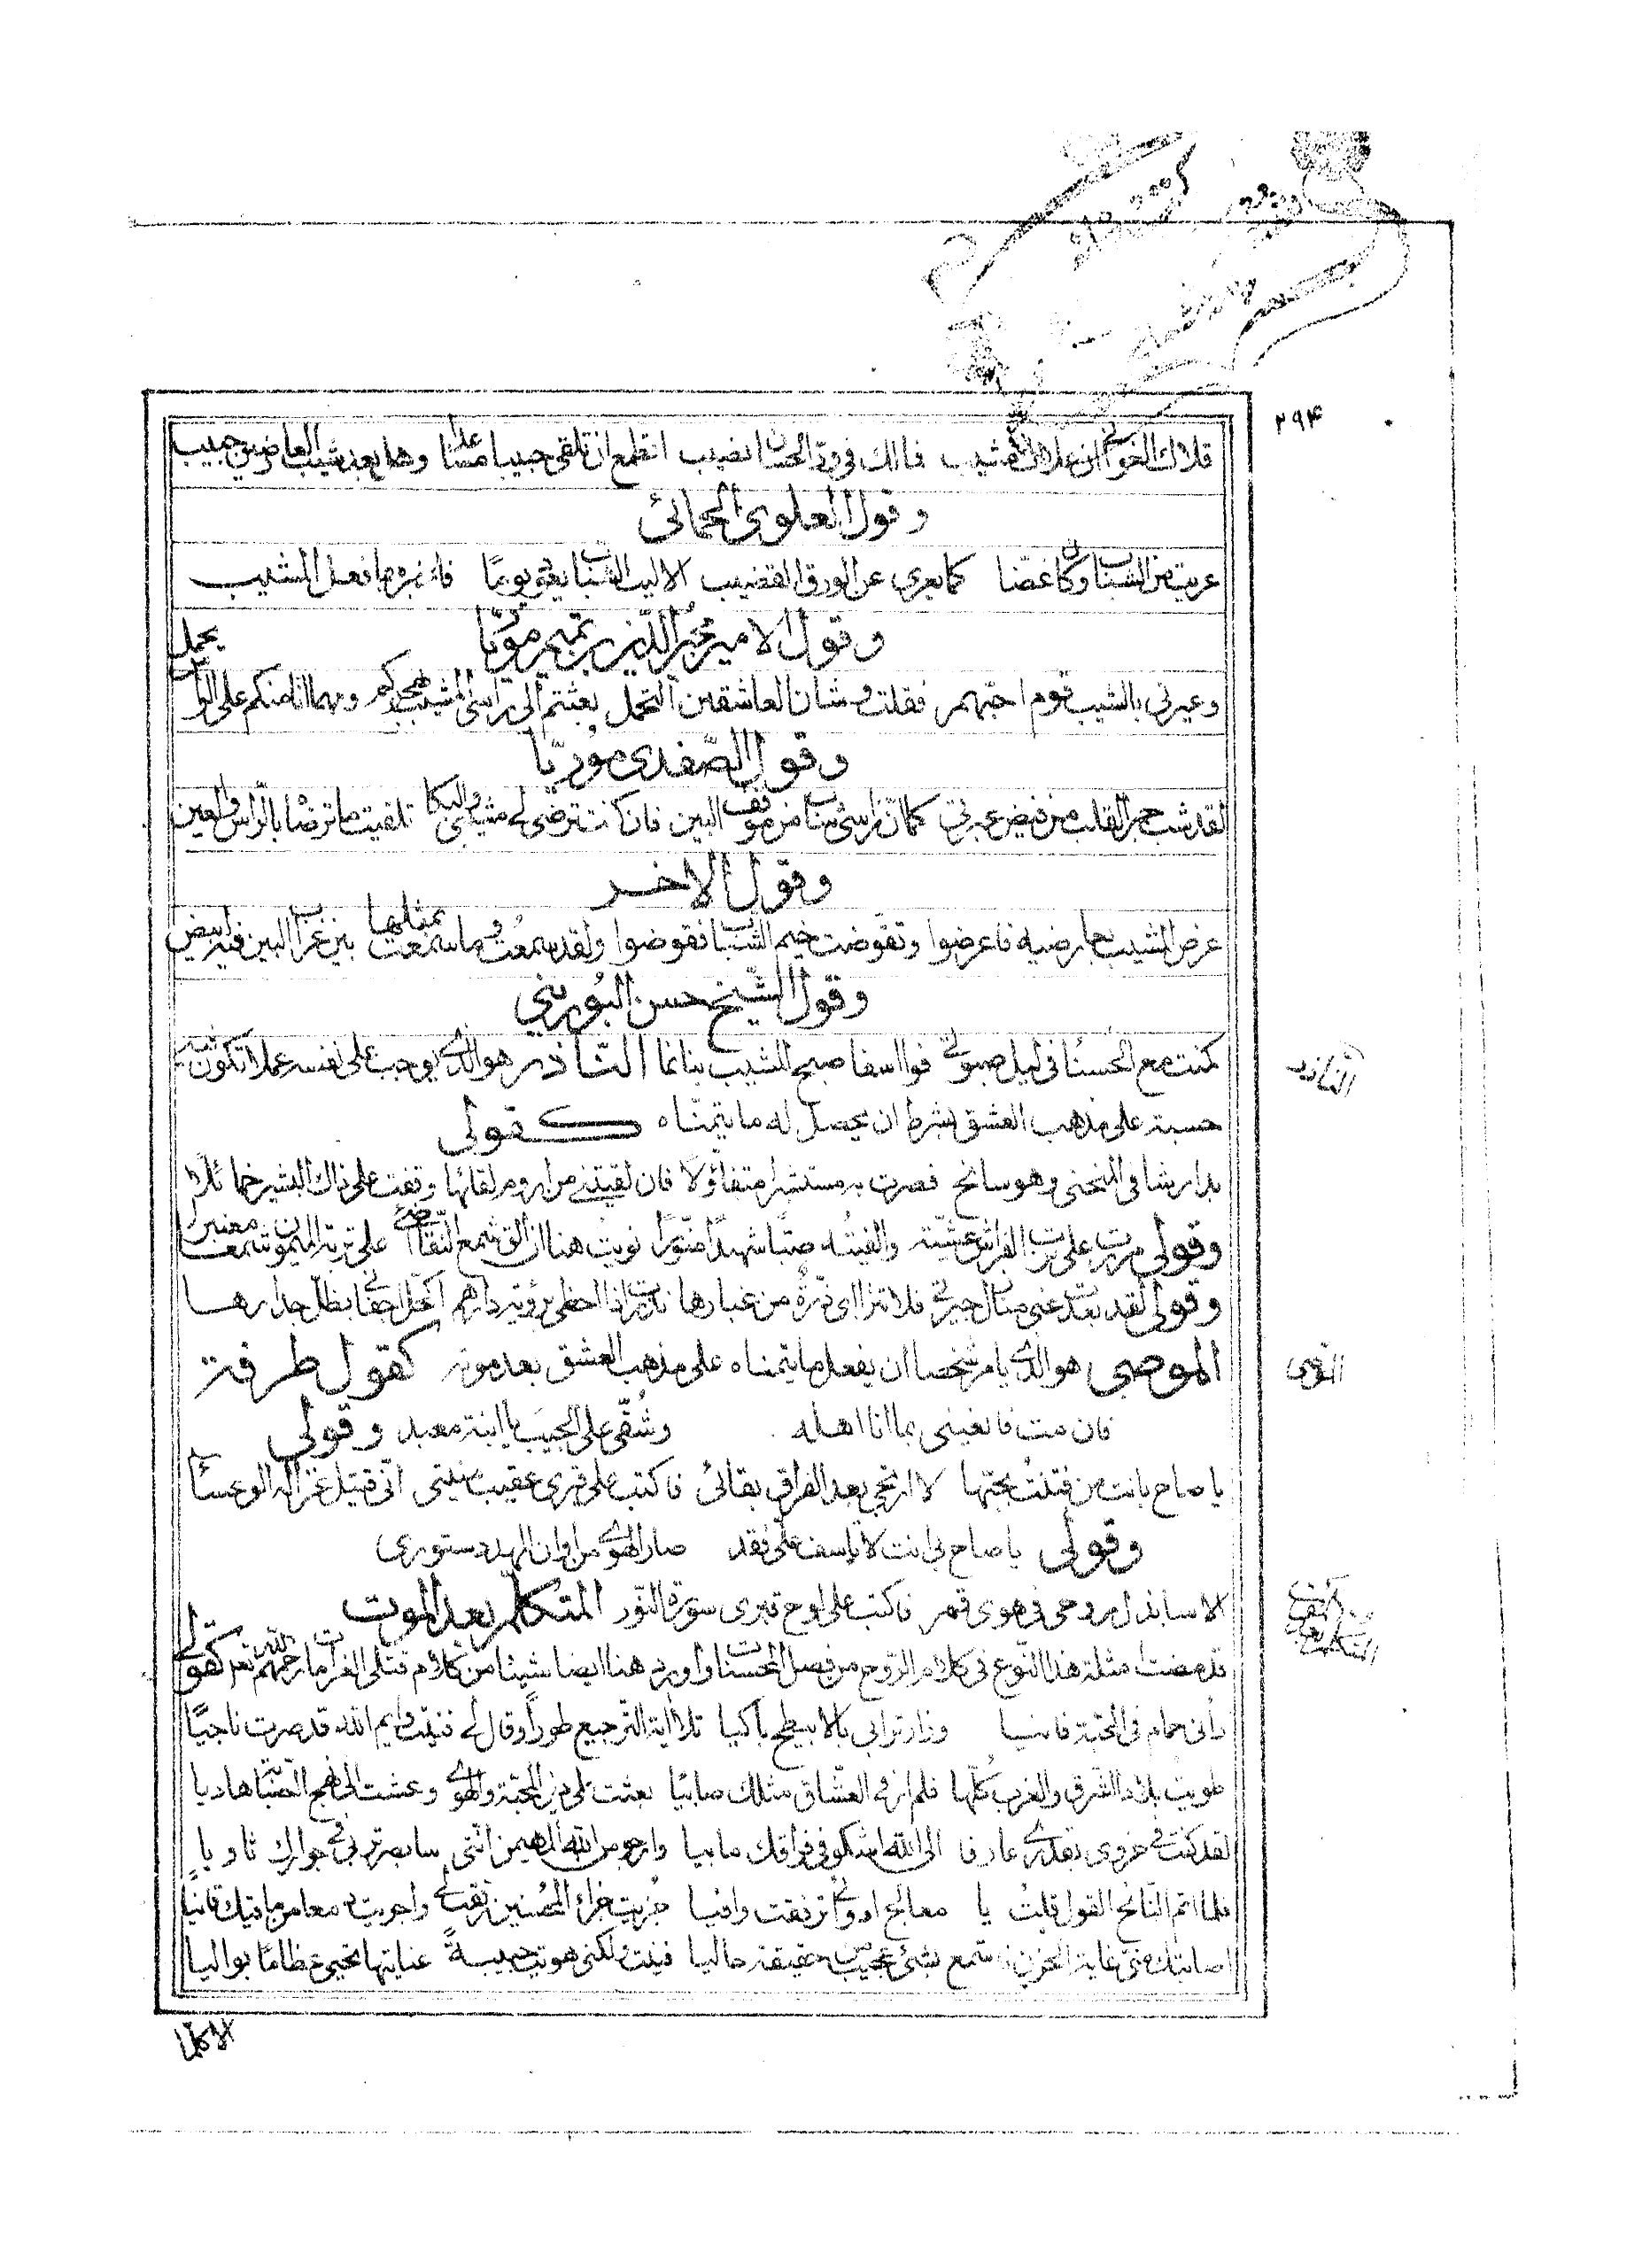 ٢٩٤
قلاك الغواني ان علاك مشيب فمالك في ود الحسان نصيب اتطمع ان تلقى حبيبا مساعدا وهل بعد شيب العارضين حبيب
وقول العلوي الحمائي
عريت من الشباب وكان غضا كما يعرى عن الورق القضيب الا ليت الشباب يعود يوما فاخبره بما فعل المشيب
وقول الامير مجير الدين بن تميم موريا
وعيرني بالشيب قوم احبهم فقلت وشان العاشقين التحمل بعثتم الى راسي المشيب بهجركم ومهما اتا منكم على الراس يحمل
وقول الصفدي موريا
لقد شب جمر القلب من فيض عبرتي كما ان راسي شاب من موقف البين فان كنت ترضى لي مشيبي والبكا تلقيت ما ترضاه بالراس والعين
وقول الاخر
عرض المشيب بعارضيه فاعرضوا وتقوضت خيم الشباب فقوضوا ولقد سمعت وما سمعت بمثلها بين غراب البين فيه ابيض
وقول الشيخ حسن البوريني
كنت مع الحسناء في ليل صبوتي فوا اسفا صبح الشيب بياننا الناذر هو الذي يوجب على نفسه عملا تكون فيه
الناذر
حسبة على مذهب العشق بشرط ان يحصل له ما يتمناه كقولي
بدا رشا في المنحنى وهو سانح فصرت به مستبشرا متفاؤلا فان لقيتني من اروم لقائها وقفت على ذاك البشير خمائلا
وقولي مررت على ترب الفراش عشية والفيته صبا شهيدا منورا نويت هنا ان الق شمع النقا ضحى على تربة الميمون شمعا معنبرا
وقولي لقد بعدت عني منازل جيرتي فلا تنزا اي ذرة من غبارها نذرت اذا احظى برؤية دارهم اكحل اجفاني بظل جدارها
الموصي هو الذي يامر شخصا ان يفعل ما يتمناه على مذهب العشق بعد موته كقول طرفة
الموصي
فان مت فانعيني بما انا اهله وشقي علي الجيب يا ابنة معبد وقولي
يا صاح بانت من فتنت بحبها لا ارتجي بعد الفراق بقائي فاكتب على قبري عقيب منيتي اني قتيل غزالة الوعساء
وقولي يا صاح بي انت لا تاسف على فقد صار الهوى من اوان المهد دستوري
لا سابذل روحي في هوى قمر فاكتب على لوح قبري سورة النور المتكلم بعد الموت
قد مضت امثلة هذا النوع في كلام الروح من فصل المحسنات واورد هنا ايضا شيئا من كلام قتلى الغرام رحمهم الله تع كقولي
راني حمام في المحبة فانيا وزار ترابي بالابيطح باكيا تلا اية الترجيع طورا وقال لي فنيت وايم الله قد صرت ناجيا
طويت بلاد الشرق والغرب كلها فلم ار في العشاق مثلك صابيا بعثت على دين المحبة والهوى وعشت الى نهج الصبابة هاديا
لقد كنت في خروي بقدري عارفا الى الله اشكو في فراقك ما بيا وارجو من الله المهيمن انني سابصرتربي في جوارك ثاويا
فلما اتم النائح القول قلت يا معالج ادوائي ترفقت وافيا جزيت جزاء المحسنين رفقت لي واجريت دمعا من ماقيك قانيا
اصابتك مني غاية الحزن فاستمع بشيء عجيب من حقيقة حاليا فنيت ولكني هويت حبيبة عنايتها تحيي عظاما بواليا
الا كلما